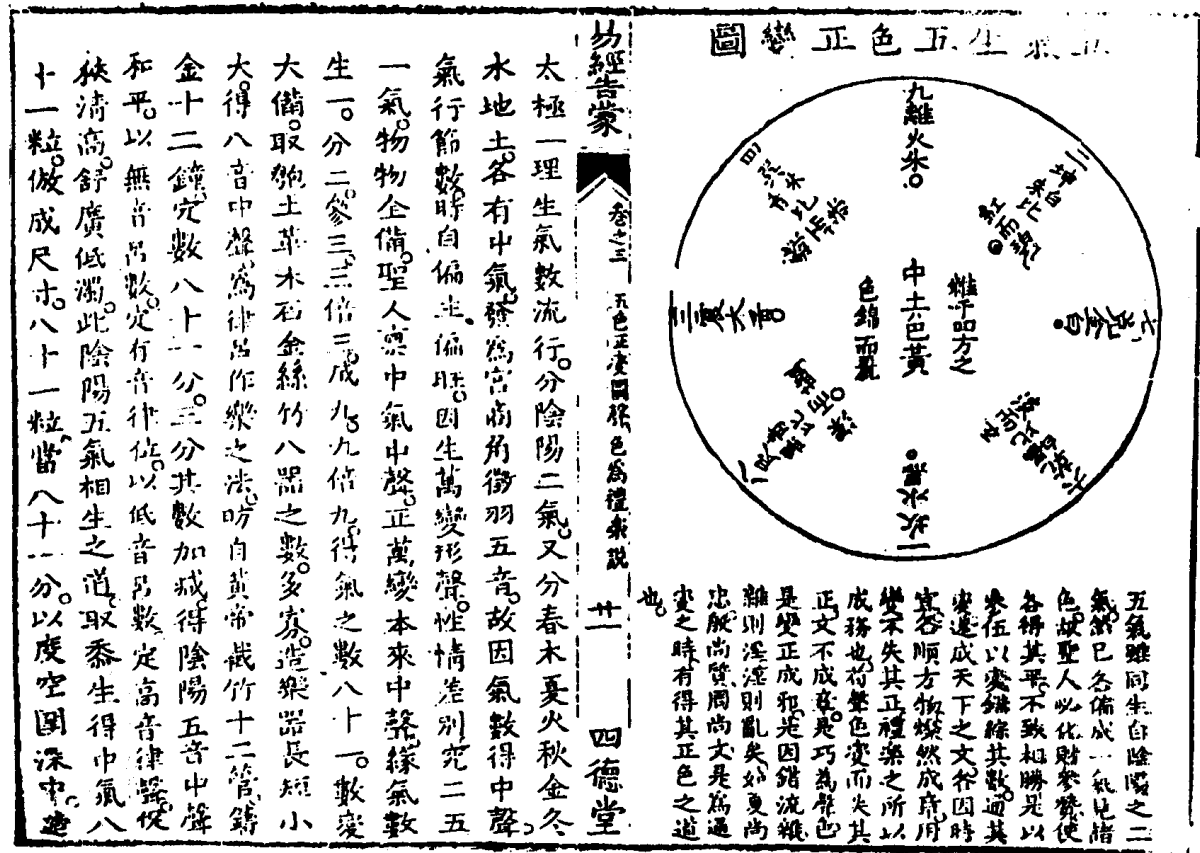 五氣生五色正變圖
九離火朱
二坤白朱比紅而
七兌金白
一坎水黑
三震木青
四巽木
中土色黃
雜乎四方之
色錦而
五氣雖同生自陰陽之二
氣然已各偏成一氣見諸
色故聖人以化財參贊使
各得其平不致相勝是以
參伍以變錯綜其數通其
變遂成天下之文各因時
宜各順方物燦然成章用
變不失其正禮樂之所以
成務也苟聲色變而失其
正文不成章是巧為聲色
是變正成邪是因錯流雜
雜則淫淫則亂矣如夏尚
忠殷尚質周尚文是為通
變之時有得其正色之道
也
易經告蒙
卷之三
五色正變圖 色為禮樂說
廿一
四德堂
太極一理生氣數流行分陰陽二氣又分春木夏火秋金冬
水地土各有中氣發為宮商角徵羽五音故因氣數得中聲
氣行節數時自偏生偏 因生萬變形聲性情差別究二五
一氣物物全備聖人稟中氣中聲正萬變本來中聲緣氣數
生一分二參三三倍三成九九倍九得氣之數八十一數變
大備取匏土革木石金絲竹八器之數多寡造樂器長短小
大得八音中聲為律呂作樂之法昉自黃帝截竹十二管鑄
金十二鐘定數八十一分三分其數加減得陰陽五音中聲
和平以無音呂數定有音律位以低音呂數定高音律聲從
狹清高舒廣低濁此陰陽五氣相生之道取黍生得中氣八
十一粒倣成尺寸八十一粒當八十一分以度空圍深中